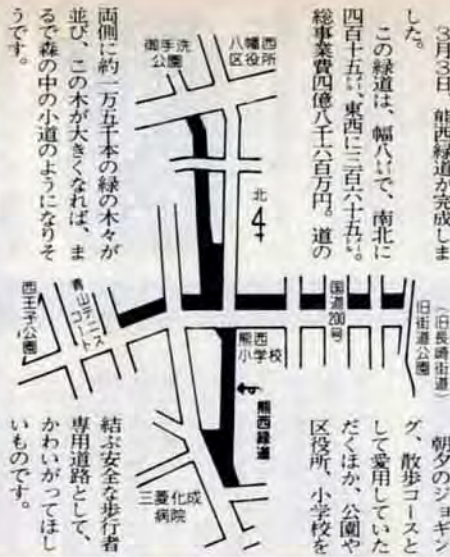 3月3日、熊西緑道が完成しま
した。
この緑道は、幅八㍍で、南北に
四百十五㍍、東西に三百六十五㍍。
総事業費四億八千六百万円。道の
両側に約一万五千本の緑の木々が
並び、この木が大きくなれば、ま
るで森の中の小道のようになりそ
うです。
朝夕のジョギン
グ、散歩コースと
して愛用していた
だくほか、公園や
区役所、小学校を
結ぶ安全な歩行者
専用道路として、
かわいがってほし
いものです。
御手洗
公園
八幡西
区役所
北
国道200号
(旧長崎街道)
旧街道公園
西王子公園
青山テニス
コート
熊西
小学校
熊西緑道
三菱化成
病院